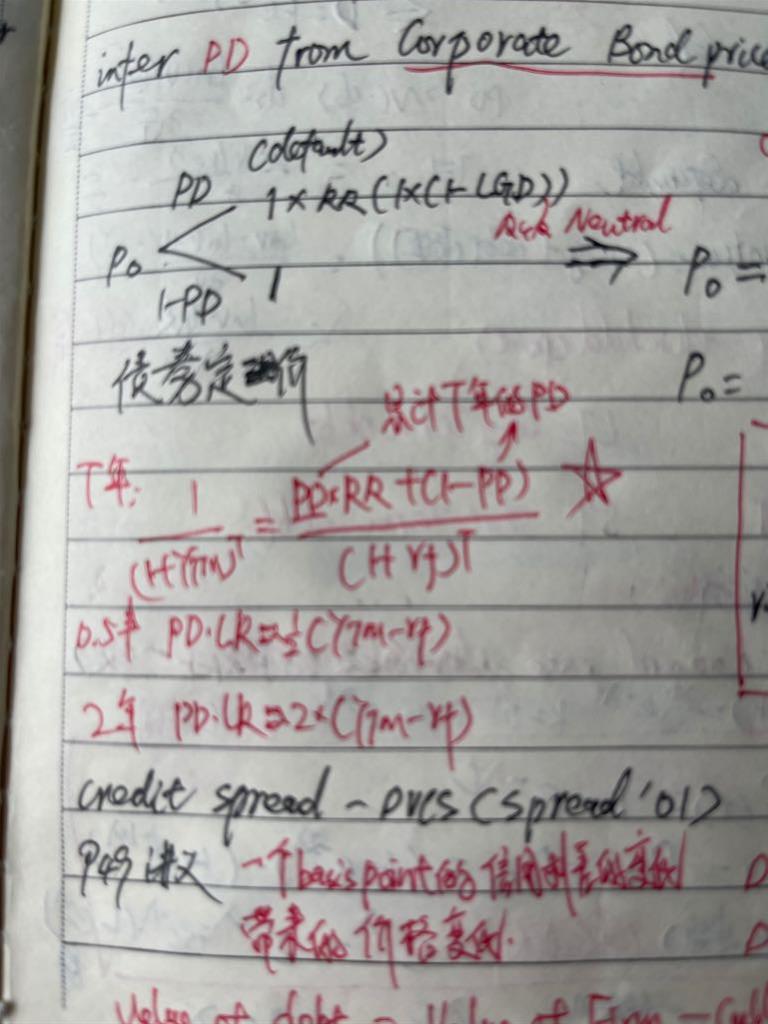 infer PD from Corporate Bond price
(default)
PD 1×RR(1×(1-LGD))
Risk Neutral
P₀ ⇒ P₀ =
1-PD 1
债券定价
P₀ =
累计T年的PD
T年: 1/(1+YTM)^T = PD×RR+(1-PD)/(1+rf)^T ☆
0.5年 PD·LR=½(YTM-rf)
2年 PD·LR=2×(YTM-rf)
credit spread - DVCS (spread '01)
P49讲义 一个basis point的信用利差的变动 D
带来的价格变动. D
Value of debt = Value of Firm - Call